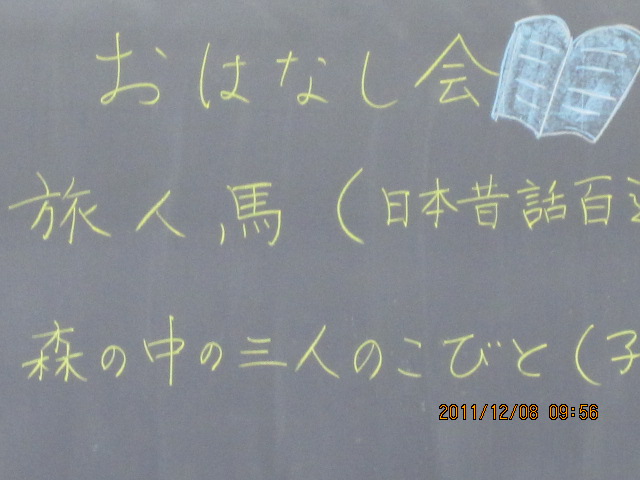 おはなし会
旅人馬(日本昔話百選
森の中の三人のこびと(子
2011/12/08 09:56